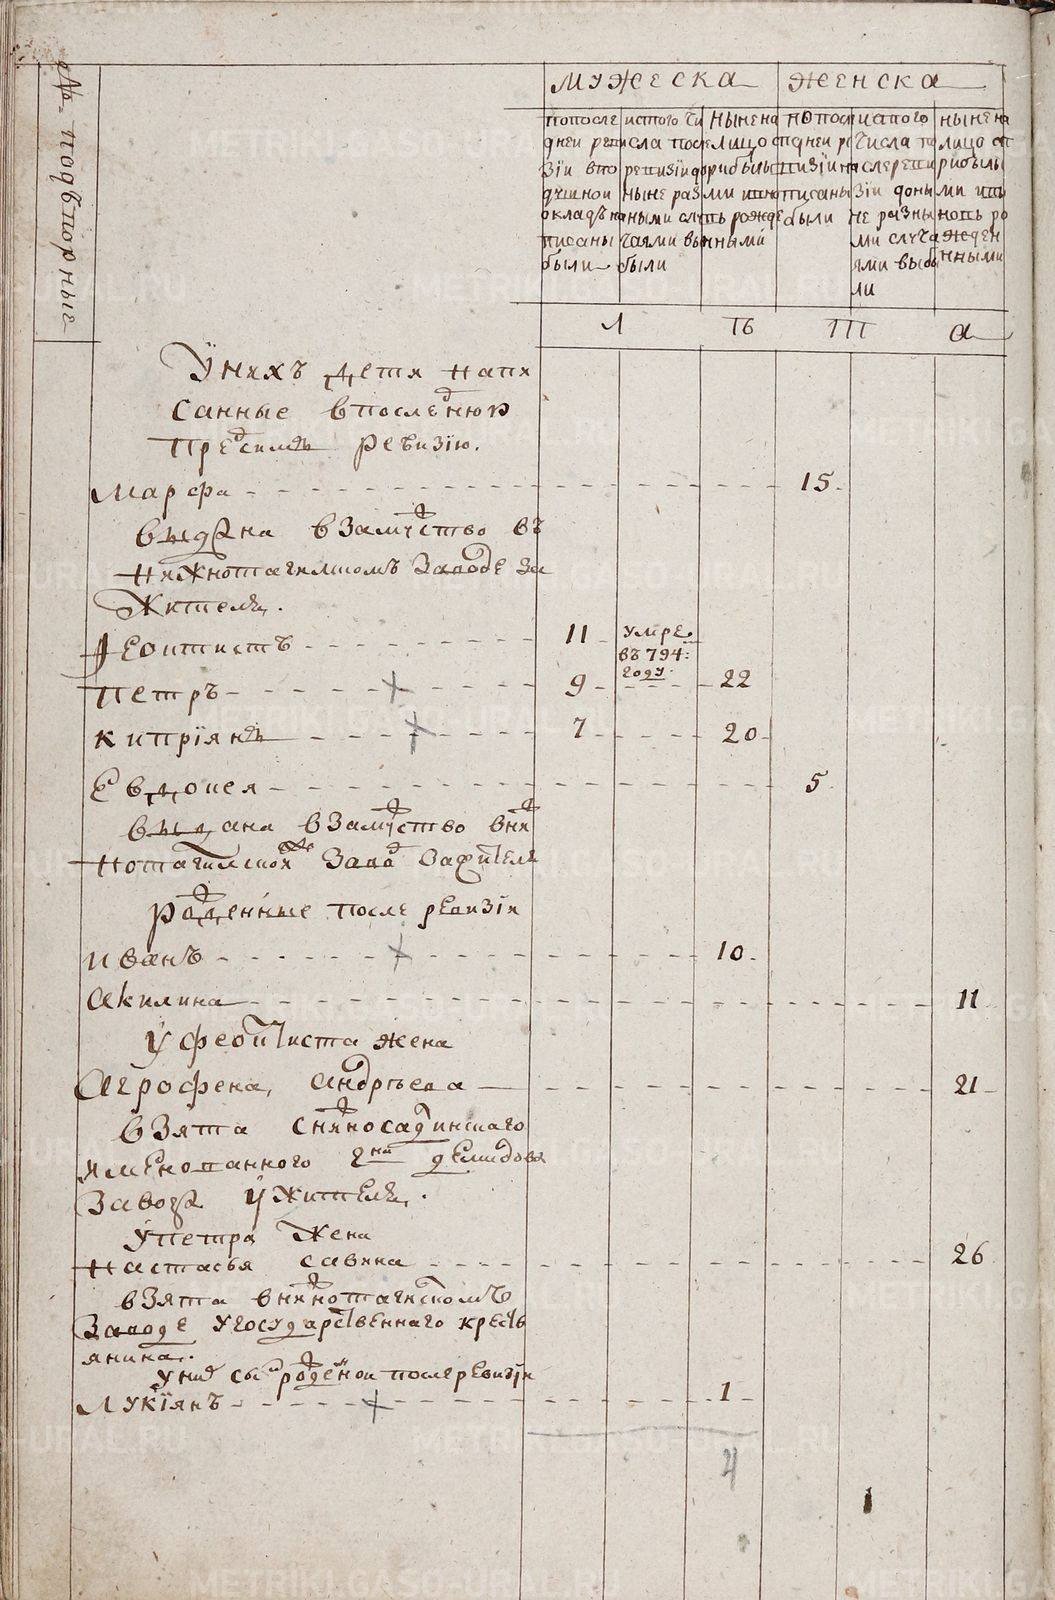 № подворные
мужеска
женска
попосле
дней реви
зіи впо
душной
окладъ на
писаны
были
истого чи
сла после
ревизіи до
ныне раз
ными слу
чаями вы
были
ныне на
лицо сп
рибылы
ми инно
ть рожде
нными
попосл
едней ре
визіи на
писаны
были
истого
числа по
слереви
зіи доны
не разны
ми случа
ями выбы
ли
ныне на
лицо сп
рибылы
ми инъ
новь ро
жден
нными
л
ть
т
а
Уних детя напи
санные впоследнюю
пред симъ ревизію.
Марфа 15
выдана взамужство въ
нижнотагилскомъ заводе за
жителя.
Феоктистъ 11 умре
въ 794:
году
петръ 9 22
киприянъ 7 20
Евдокея 5
выдана взамужство вни
нотагилской завод зажителя
рожденные после ревизіи
иванъ 10
акилина 11
У феоктиста жена
агрофена, андреева 21
взята снижносалдинскаго
имянованного гна демидова
завода у жителя.
Упетра жена
настасья савина 26
взята внижнотагилскомъ
заводе угосударственнаго кресть
янина.
у них сынъ рожденой послеревизіи
Лукіянъ 1
4